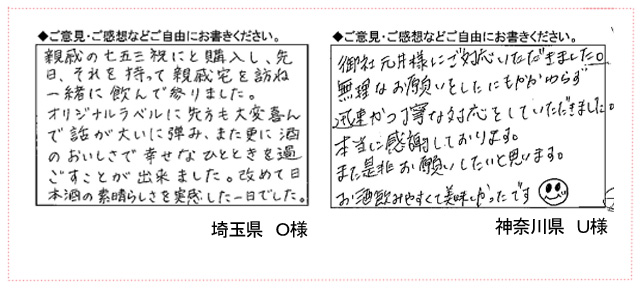 ◆ご意見・ご感想などご自由にお書きください。
親戚の七五三祝にと購入し、先
日、それを持って親戚宅を訪ね
一緒に飲んで参りました。
オリジナルラベルに先方も大変喜ん
で話が大いに弾み、また更に酒
のおいしさで幸せなひとときを過
ごすことが出来ました。改めて日
本酒の素晴らしさを実感した一日でした。
埼玉県 O様
◆ご意見・ご感想などご自由にお書きください。
御社元井様にご対応いただきました。
無理なお願いをしたにもかかわらず
迅速かつ丁寧な対応をしていただきました。
本当に感謝しております。
また是非お願いしたいと思います。
お酒飲みやすくて美味しかったです
神奈川県 U様